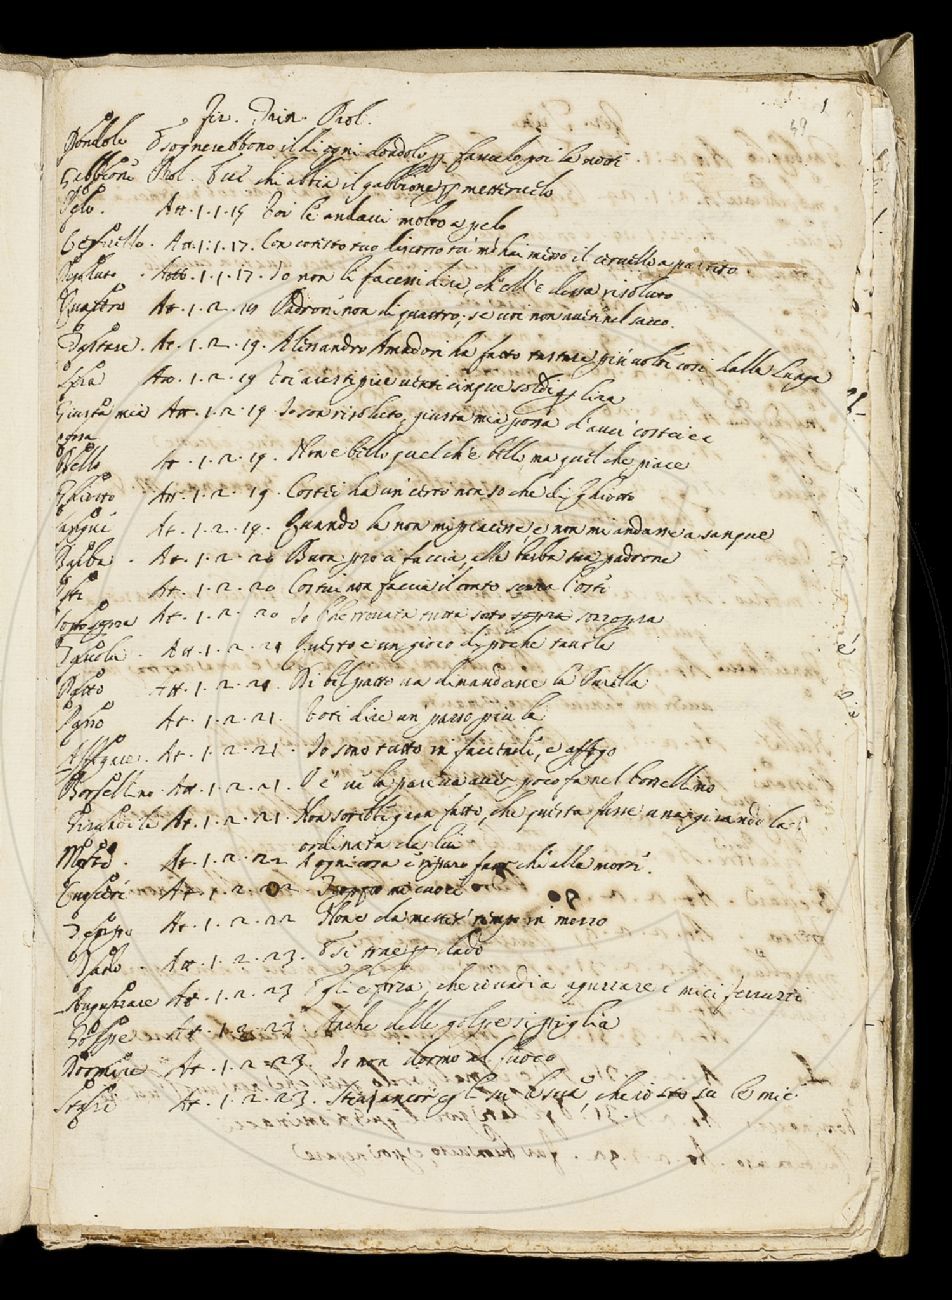 1
59
Fir. Trin. Prol.
Dondolo E sognerebbono il dì ogni dondolo p farvelo poi la notte
Gabbione Prol. E ui chi abbia il gabbione p mettervelo
Pelo. Att. 1. 1. 15 Voi le andaui molto a pelo
Ceruello. Att. 1. 1. 17. Con cotesto tuo discorso tu m'hai messo il ceruello a partito.
Risoluto. Att. 1. 1. 17. Io non le facessi dire, ch'ell'è dessa risoluto
Quattro At. 1. 2. 19 Padron non di quattro, se uoi non
Tastare. At. 1. 2. 19. Alessandro Amadori ha fatto tastare più uolte così dalla lunga
Lira Att. 1. 2. 19 uenti cinque soldi p lira
Giusta mia Att. 1. 2. 19 Io son risoluto, giusta mia possa d'auer costei
possa
Bello At. 1. 2. 19. Non è bello quel ch'è bello ma quel che piace
Ghiotto Att. 1. 2. 19. Costei ha un certo non so che di ghiotto
Sangue At. 1. 2. 19. Quando la non mi piacesse e non mi andasse a sangue
Barba. At. 1. 2. 20 Buon pro ci faccia, alla barba tua padrone
Osti At. 1. 2. 20 Costui non faccia il conto senza l'osti
Sottosopra At. 1. 2. 20 Io l'ho trouata tutta sotto sopra sozzopra
Tauole. Att. 1. 2. 21 Questo è un gioco di poche tauole
Patto Att. 1. 2. 21. Di bel patto ua dimandare la Purella
Passo At. 1. 2. 21. Voti dire un passo più là
Affogare. At. 1. 2. 21. Io sono tutto in faccende, e affogo
Borsellino. Att. 1. 2. 21. poco fa nel borsellino
Girandola At. 1. 2. 21. Non sarebbe gran fatto, che questa fusse una girandola
ordinata da lui
Morte. At. 1. 2. 22 A ogni cosa è riparo fuor che alla morte.
Cuocere At. 1. 2. 22 Troppo mi cuoce
Tempo At. 1. 2. 22 Non è da metter tempo in mezzo
Dado. Att. 1. 2. 23. E si trae p dado
Aguzzare At. 1. 2. 23 Egli è forza, che io uadi a aguzzare i miei ferruzzi
Golpe At. 1. 2. 23. Anche delle golpe si piglia
Dormire At. 1. 2. 23. Io non dormo al fuoco
Stare At. 1. 2. 23. Stia ancor egli su le sua, che io sto su le mie